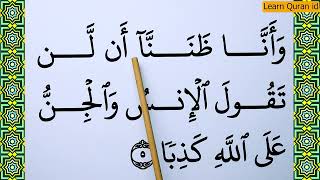 Learn Quran id
وَأَنَّا ظَنَنَّآ أَن لَّن
تَقُولَ ٱلْإِنسُ وَٱلْجِنُّ
عَلَى ٱللَّهِ كَذِبًا ٥